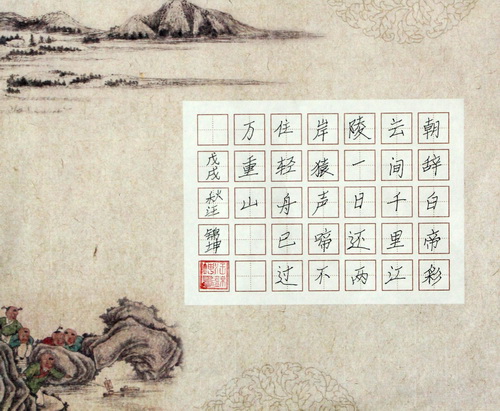 朝辞白帝彩
云间千里江
陵一日还两
岸猿声啼不
住轻舟已过
万重山
戊戌秋汪锦坤